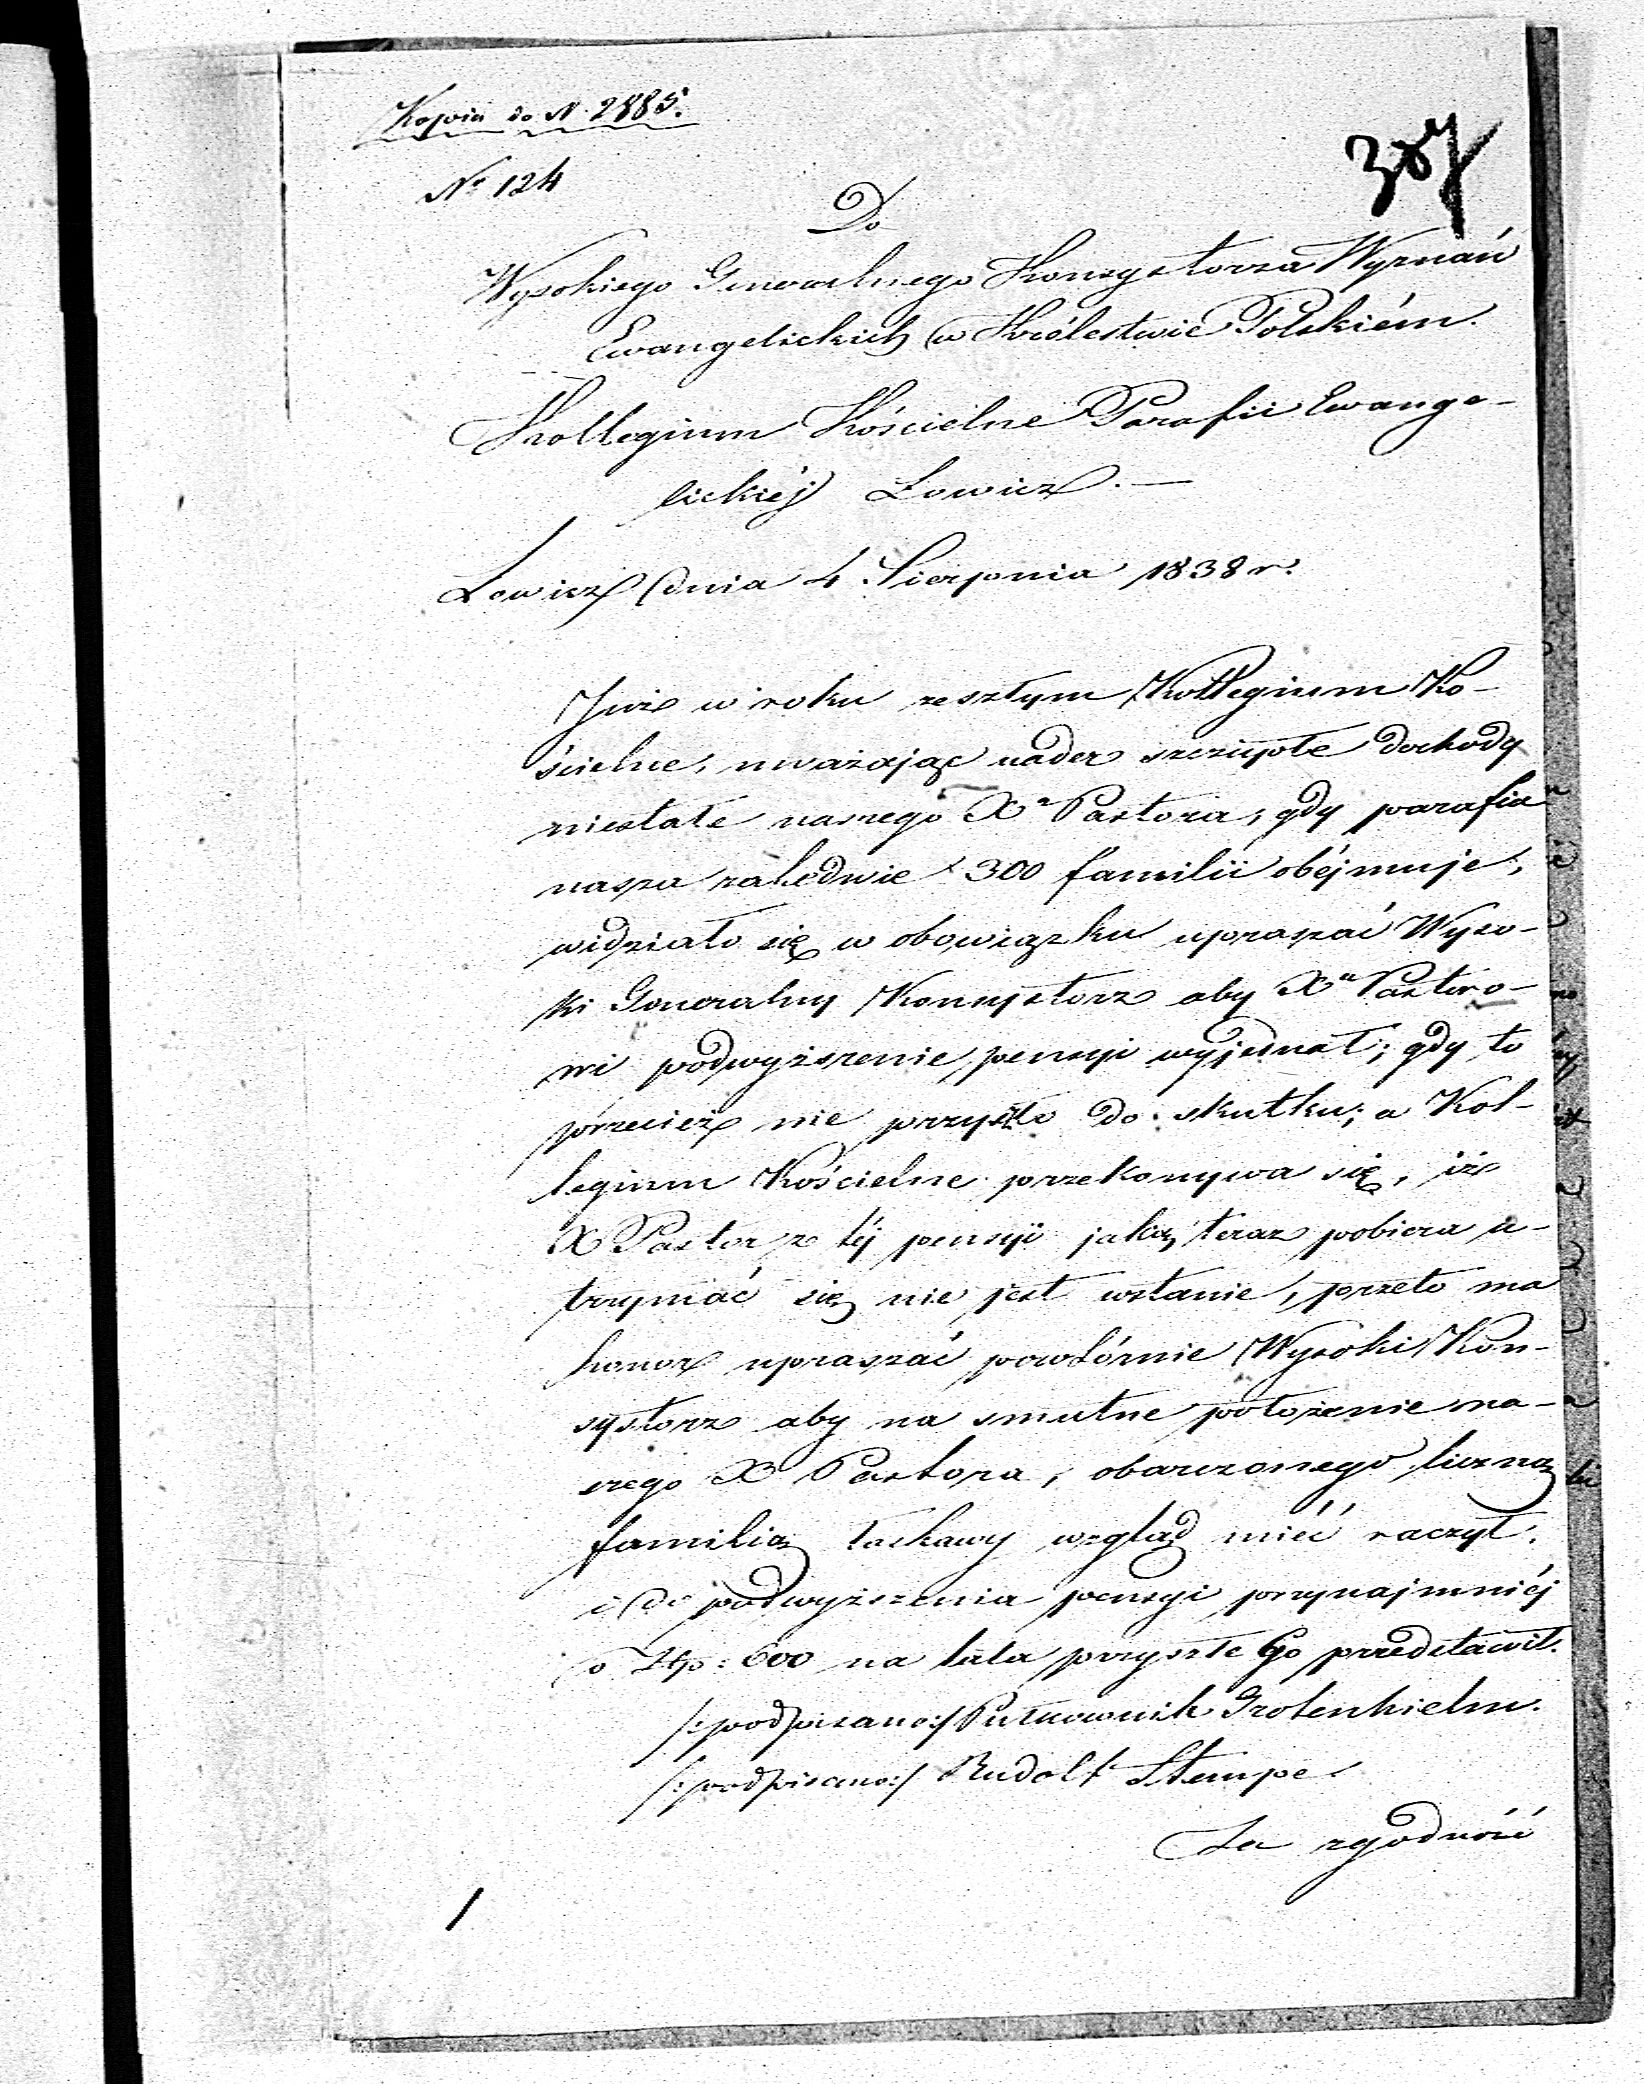 Kopia do N. 2885.
307
No 124
Do
Wysokiego Generalnego Konsystorza Wyznań
Ewangelickich w Królestwie Polskiém.
Kollegium Kościelne Parafii Ewange-
lickiéj Łowicz. —
Łowicz dnia 4 Sierpnia 1838 r.
Już w roku zeszłym Kollegium Ko-
ścielne, uważając nader szczupłe dochody
niestałe naszego Xa Pastora, gdy parafia
nasza zaledwie 300 familii obéjmuje,
widziało się w obowiązku upraszać Wyso-
ki Generalny Konsystorz aby Xu Pastoro-
wi podwyższenie pensyi wyjednał; gdy to
przecież nie przyszło do skutku; a Kol-
legium Kościelne przekonywa się, iż
X Pastor z téj pensyi jaką teraz pobiera u-
trzymać się nie jest wstanie, przeto ma
honor upraszać powtórnie Wysoki Kon-
systorz aby na smutne położenie na-
szego X Pastora, obarczonego liczną
familią łaskawy wzgląd mieć raczył.
i do podwyższenia pensyi przynajmniéj
o Złp: 600 na lata przyszłe Go przedstawił.
/:podpisano:/ Pułkownik Grotenhielm.
/:podpisano:/ Rudolf Stempe
Za zgodność